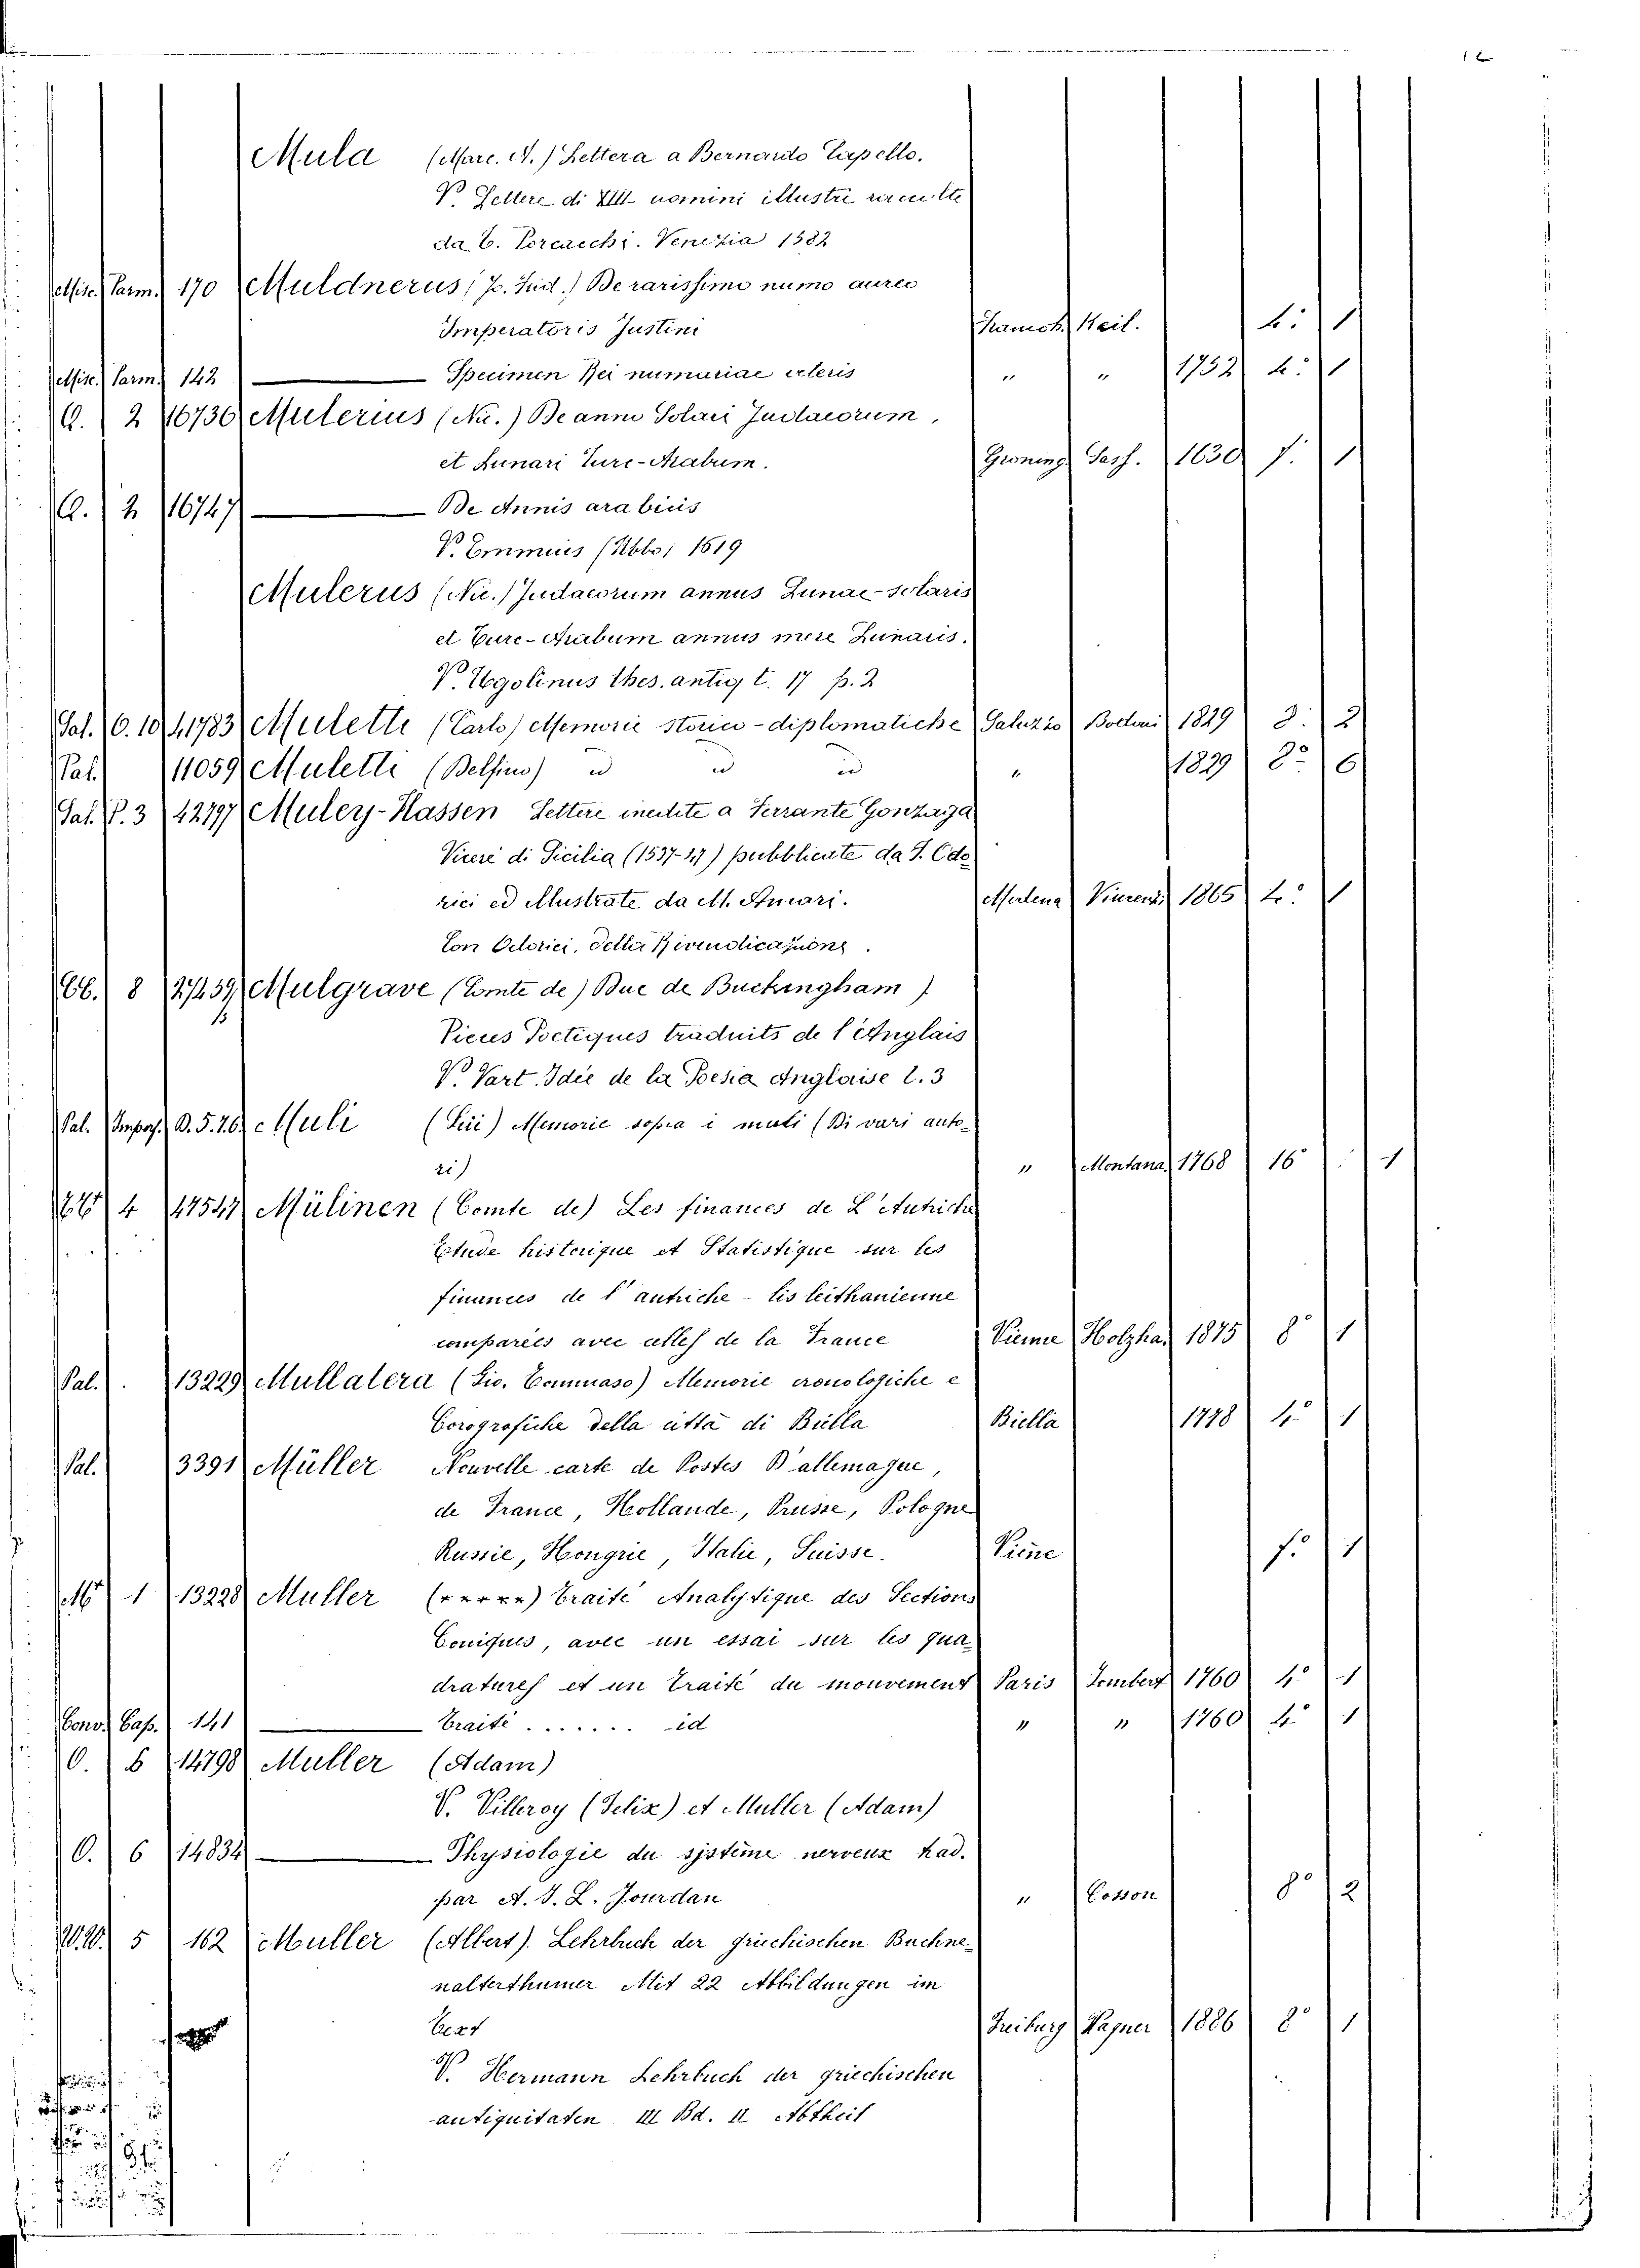 Mula (Marc. A.) Lettera a Bernardo Capello.
V. Lettere di XIII uomini illustri
da T. Porcacchi. Venezia 1582
Misc. Parm. 170 Muldnerus (Jo. Frid.) De rarissimo numo aureo
Imperatoris Justini Keil. 4.° 1
Misc. Parm. 142 ——— Specimen Rei numariae veteris " " 1752 4.° 1
Q. 2 16736 Mulerius (Nic.) De anno Solari Judaeorum,
et Lunari Turc-Arabum. Groning. Sass. 1630 f. 1
Q. 2 16747 ——— De Annis arabicis
V. Emmius (Ubbo) 1619
Mulerus (Nic.) Judaeorum annus Lunae-solaris
et Turc-Arabum annus mere Lunaris.
V. Ugolinus thes. antiq. t. 17 p. 2
Pal. C. 10 41783 Muletti (Carlo) Memorie storico-diplomatiche Saluzzo Bodoni 1829 8.° 2
Pal. 11059 Muletti (Delfino) id id id " 1829 8.° 6
Pal. P. 3 42797 Muley-Hassen Lettere inedite a Ferrante Gonzaga
Vicere di Sicilia (1537-47) pubblicate da F. Odo
rici ed illustrate da M. Amari. Modena Vincenzi 1865 4.° 1
Con Odorici, della Rivendicazione.
CC. 8 27459 Mulgrave (Comte de) Duc de Buckingham)
Pieces Poetiques traduits de l'Anglais
V. Yart. Idée de la Poesia Anglaise t. 3
Pal. D. 5. 26 Muli (Sui) Memorie sopra i muli (Di vari auto-
ri) " Montana 1768 16° : 1
4 47547 Mülinen (Comte de) Les finances de L'Autriche
Etude historique et Statistique sur les
finances de l'autriche-cis leithanienne
comparées avec celles de la France Vienne Holzha. 1875 8° 1
Pal. 13229 Mullatera (Gio. Tommaso) Memorie cronologiche e
Corografiche della citta di Biella Biella 1778 4.° 1
Pal. 3391 Müller Nouvelle carte de Postes D'allemagne,
de France, Hollande, Prusse, Pologne
Russie, Hongrie, Italie, Suisse. Viene f.° 1
1 13228 Muller (****) Traité Analytique des Sections
Coniques, avec un essai sur les qua-
dratures et un traité du mouvement Paris Jombert 1760 4.° 1
Conv. Cap. 141 ——— Traité . . . . . . . id " " 1760 4.° 1
O. 6 14798 Muller (Adam)
V. Villeroy (Felix) et Muller (Adam)
O. 6 14834 ——— Physiologie du système nerveux trad.
par A. J. L. Jourdan " Cosson 8° 2
W.W. 5 162 Muller (Albert). Lehrbuch der griechischen Buchne-
nalterthumer Mit 22 Abbildungen im
Text Freiburg Wagner 1886 8° 1
V. Hermann Lehrbuch der griechischen
antiquitaten III Bd. II Abtheil